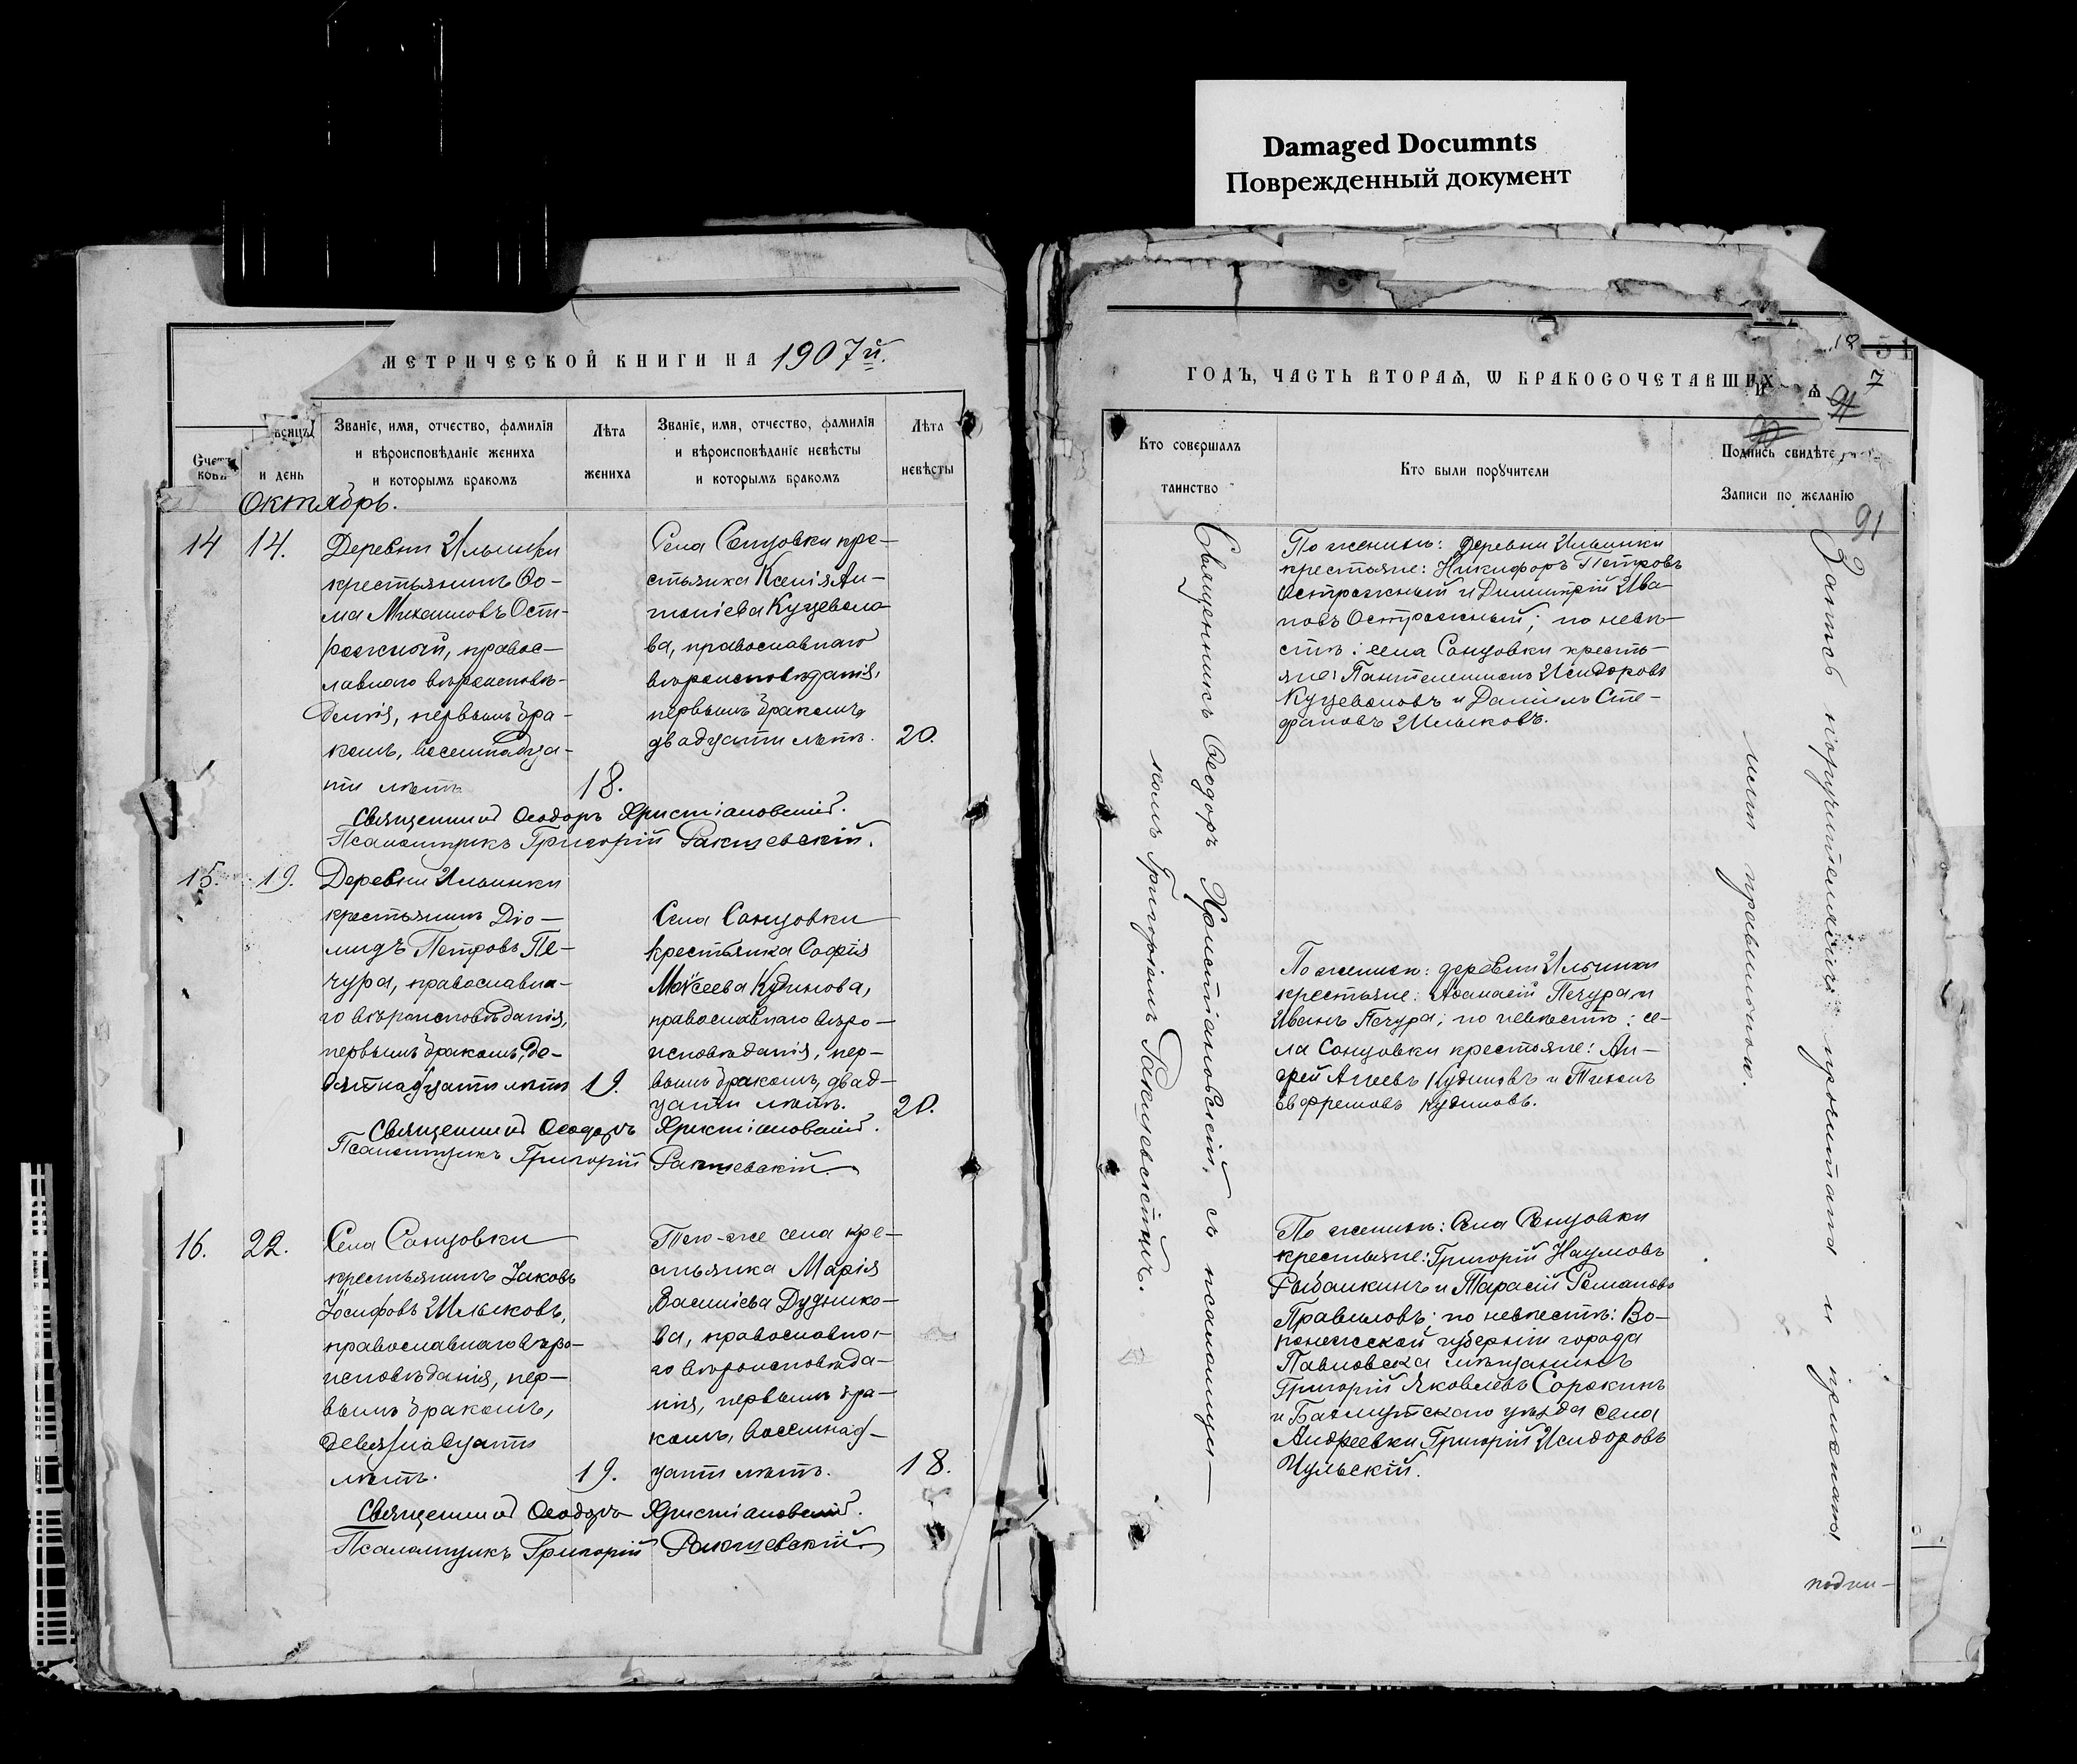 Damaged Documnts
Поврежденный документ
МЕТРИЧЕСКОЙ КНИГИ НА 1907й.
Счетъ
ковъ
и день
Званіе, имя, отчество, фамилія
и вѣроисповѣданіе жениха
и которымъ бракомъ
Лѣта
жениха
Званіе, имя, отчество, фамилія
и вѣроисповѣданіе невѣсты
и которымъ бракомъ
Лѣта
невѣсты
Октябрь.
14
14.
Деревни Ильинки
крестьянинъ Ѳо-
ма Михаиловъ Ост-
рожный, правос-
лавнаго вѣроисповѣ-
данія, первымъ бра-
комъ, восемнадца-
ти лѣтъ
18.
Села Сонцовки кре-
стьянка Ксенія Ан-
тоніева Куцевола-
ва, православнаго
вѣроисповѣданія,
первымъ бракомъ,
двадцати лѣтъ.
20.
Священникъ Ѳеодоръ Христіановскій.
Псаломщикъ Григорій Ракшевскій.
15.
19.
Деревни Ильинки
крестьянинъ Діо-
мидъ Петровъ Пе-
чура, православна-
го вѣроисповѣданія,
первымъ бракомъ, де-
вятнадцати лѣтъ
19.
Села Сонцовки
крестьянка Софія
Моѵсеева Кудинова,
православнаго вѣро-
исповѣданія, пер-
вымъ бракомъ, двад-
цати лѣтъ.
20.
Священникъ Ѳеодоръ Христіановскій.
Псаломщикъ Григорій Ракшевскій.
16.
22.
Села Сонцовки
крестьянинъ Іаковъ
Іосифовъ Илыковъ,
православнаго вѣро-
исповѣданія, пер-
вымъ бракомъ,
девятнадцати
лѣтъ.
19.
Того-же села кре-
стьянка Марія
Василіева Дудко-
ва, православна-
го вѣроисповѣда-
нія, первымъ бра-
комъ, восемнад-
цати лѣтъ.
18.
Священникъ Ѳеодоръ Христіановскій.
Псаломщикъ Григорій Ракшевскій
ГОДЪ, ЧАСТЬ ВТОРАЯ, Ѡ БРАКОСОЧЕТАВШИХ
7
91
Кто совершалъ
таинство
Кто были поручители
Подпись свидѣте
Записи по желанію
Священникъ Ѳеодоръ Христіановскій, съ псаломщи-
комъ Григоріемъ Ракшевскимъ.
По женихѣ: деревни Ильинки
крестьяне: Никифоръ Петровъ
Острожный и Димитрій Ива-
новъ Острожный; по невѣ-
стѣ: села Сонцовки кресть-
яне: Пантелеимонъ Исидоровъ
Куцеволовъ и Даніилъ Сте-
фановъ Илыковъ.
По женихѣ: деревни Ильинки
крестьяне: Аѳанасій Печура и
Иванъ Печура; по невѣстѣ: се-
ла Сонцовки крестьяне: Ан-
дрей Агеевъ Кудиновъ и Тихонъ
Евфремовъ Кудиновъ.
По женихѣ: Села Сонцовки
крестьяне: Григорій Наумовъ
Рыбалкинъ и Тарасій Романовъ
Правиловъ; по невѣстѣ: Во-
ронежской губерніи города
Павловска мѣщанинъ
Григорій Яковлевъ Сорокинъ
и Бахмутскаго уѣзда села
Андреевки Григорій Исидоровъ
Чульскій.
Запись поручителями прочитана и признана
ими правильною.